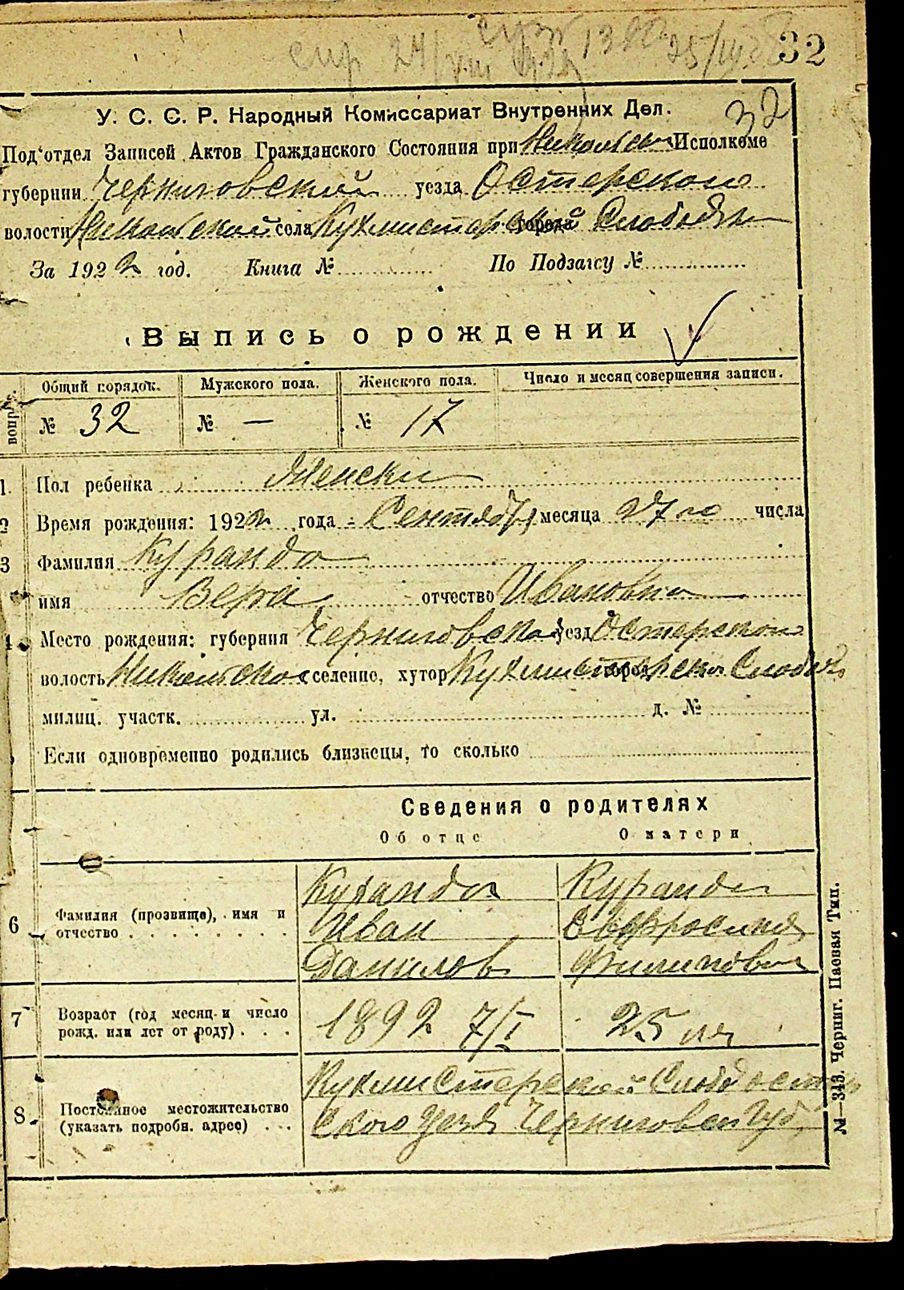 32
32
У. С. С. Р. Народный Комиссариат Внутренних Дел.
Под'отдел Записей Актов Гражданского Состояния при Никольск Исполкоме
губернии Черниговский уезда Остерского
волости Никольской села Кухмистерской города Слободы
За 1922 год. Книга № По Подзагсу №
Выпись о рождении
Общий порядок. Мужского пола. Женского пола. Число и месяц совершения записи.
№ 32 № — № 17
1 Пол ребенка Женски
2 Время рождения: 1922 года Сентября месяца 27го числа
3 Фамилия Курандо
имя Вера отчество Ивановна
4 Место рождения: губерния Черниговская уезд Остерской
волость Никольской селение, хутор Кухмистерска город Слобода
милиц. участк. ул. д. №
Если одновременно родились близнецы, то сколько
Сведения о родителях
Об отце О матери
6 Фамилия (прозвище), имя и отчество
Курандо Курандо
Иван Евфросиния
Данилов Филипова
7 Возраст (год месяц и число рожд. или лет от роду)
1892 7/I 25 лет
8 Постоянное местожительство (указать подробн. адрес)
Кухмистерской Слобод Остер
ского уезд Черниговск Губ
№—343. Черниг. Паевая Тип.